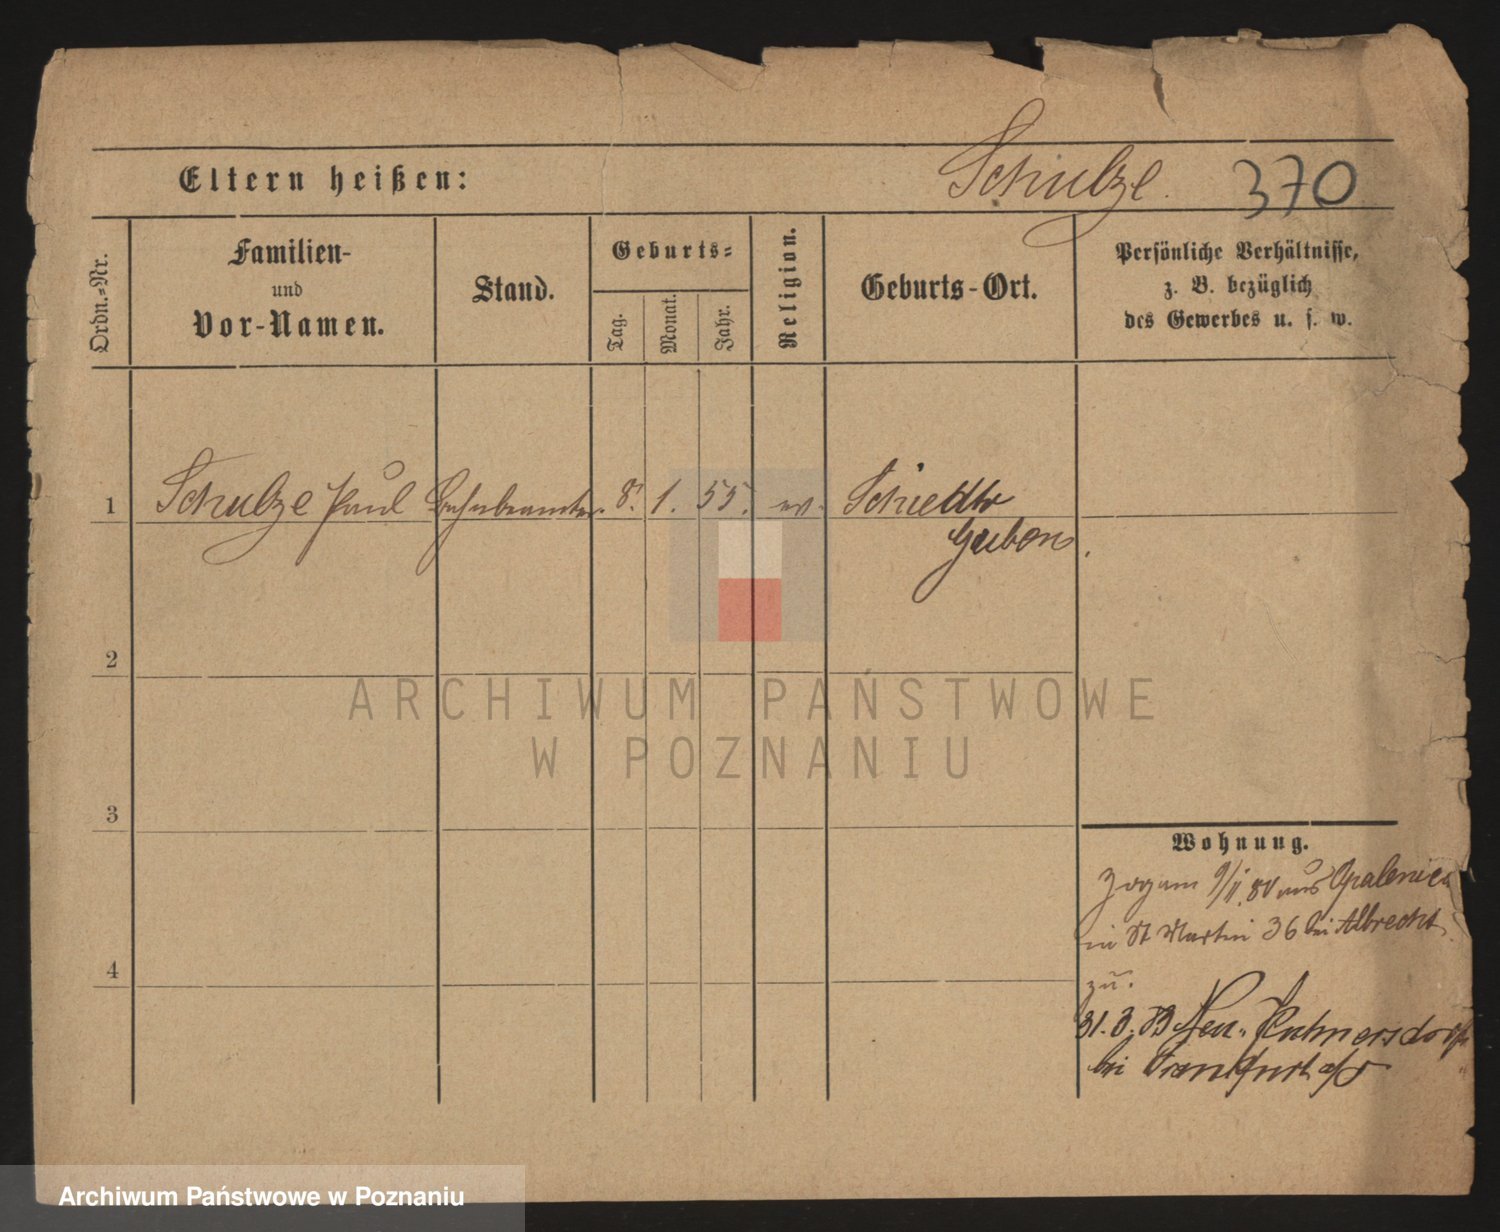 Eltern heißen:
Schulze. 370
Ordn.-Nr.
Familien-
und
Vor-Namen.
Stand.
Geburts-
Tag.
Monat.
Jahr.
Religion.
Geburts-Ort.
Persönliche Verhältnisse,
z. B. bezüglich
des Gewerbes u. s. w.
1 Schulze Paul Bahnbeamter. 8. 1. 55. ev. Schiedlo
Guben.
2
3
4
Wohnung.
Zog am 9/II. 80 aus Opalenica
in St Martin 36 bei Albrecht
zu.
31. 3. 83 Neu-
bei Frankfurt a/O
ARCHIWUM PAŃSTWOWE
W POZNANIU
Archiwum Państwowe w Poznaniu